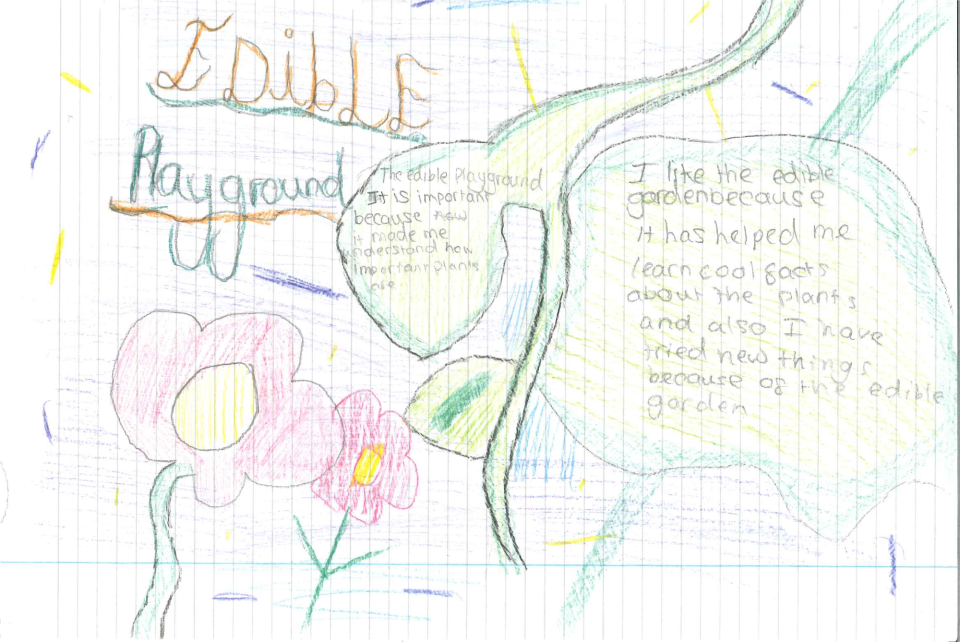 EDibLE
Playground
The edible Playground
It is important
because how
it made me
understand how
important plants
are
I like the edible
gardenbecause
it has helped me
learn cool facts
about the plants
and also I have
tried new things
because of the edible
garden